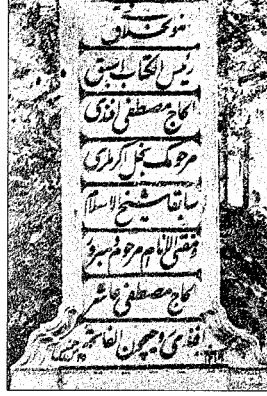 هو الخلاق
رئيس الكتاب اسبق
الحاج مصطفى افندى
مرحومك نجل كرملرى
سابقا شيخ الاسلام
ومفتى الانام مرحوم مبرور
الحاج مصطفى عاشر
افندى روحيچون الفاتحه